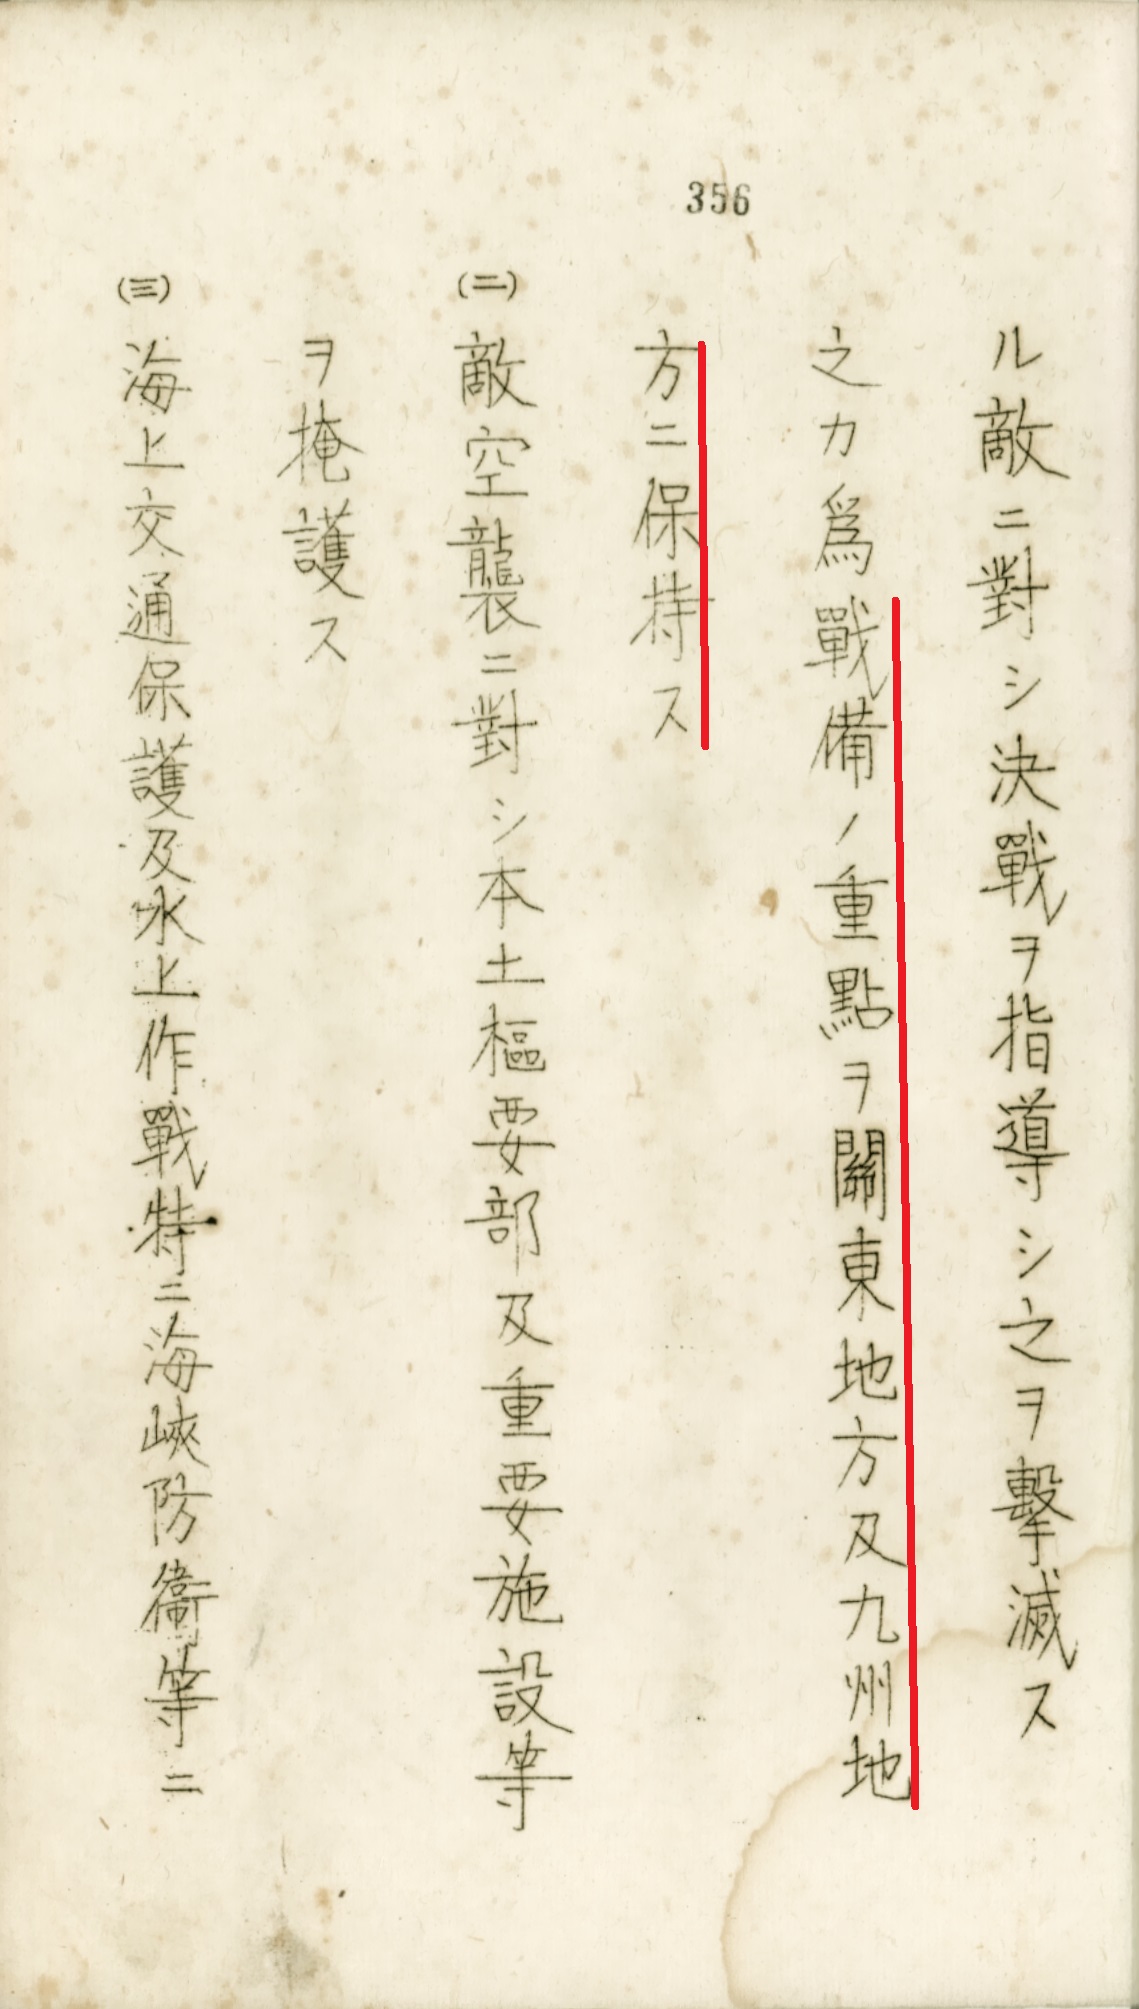 356
ル敵ニ對シ決戰ヲ指導シ之ヲ擊滅ス
之カ爲戰備ノ重點ヲ關東地方及九州地
方ニ保持ス
(二)敵空襲ニ對シ本土樞要部及重要施設等
ヲ掩護ス
(三)海上交通保護及水上作戰特ニ海峽防衞等ニ